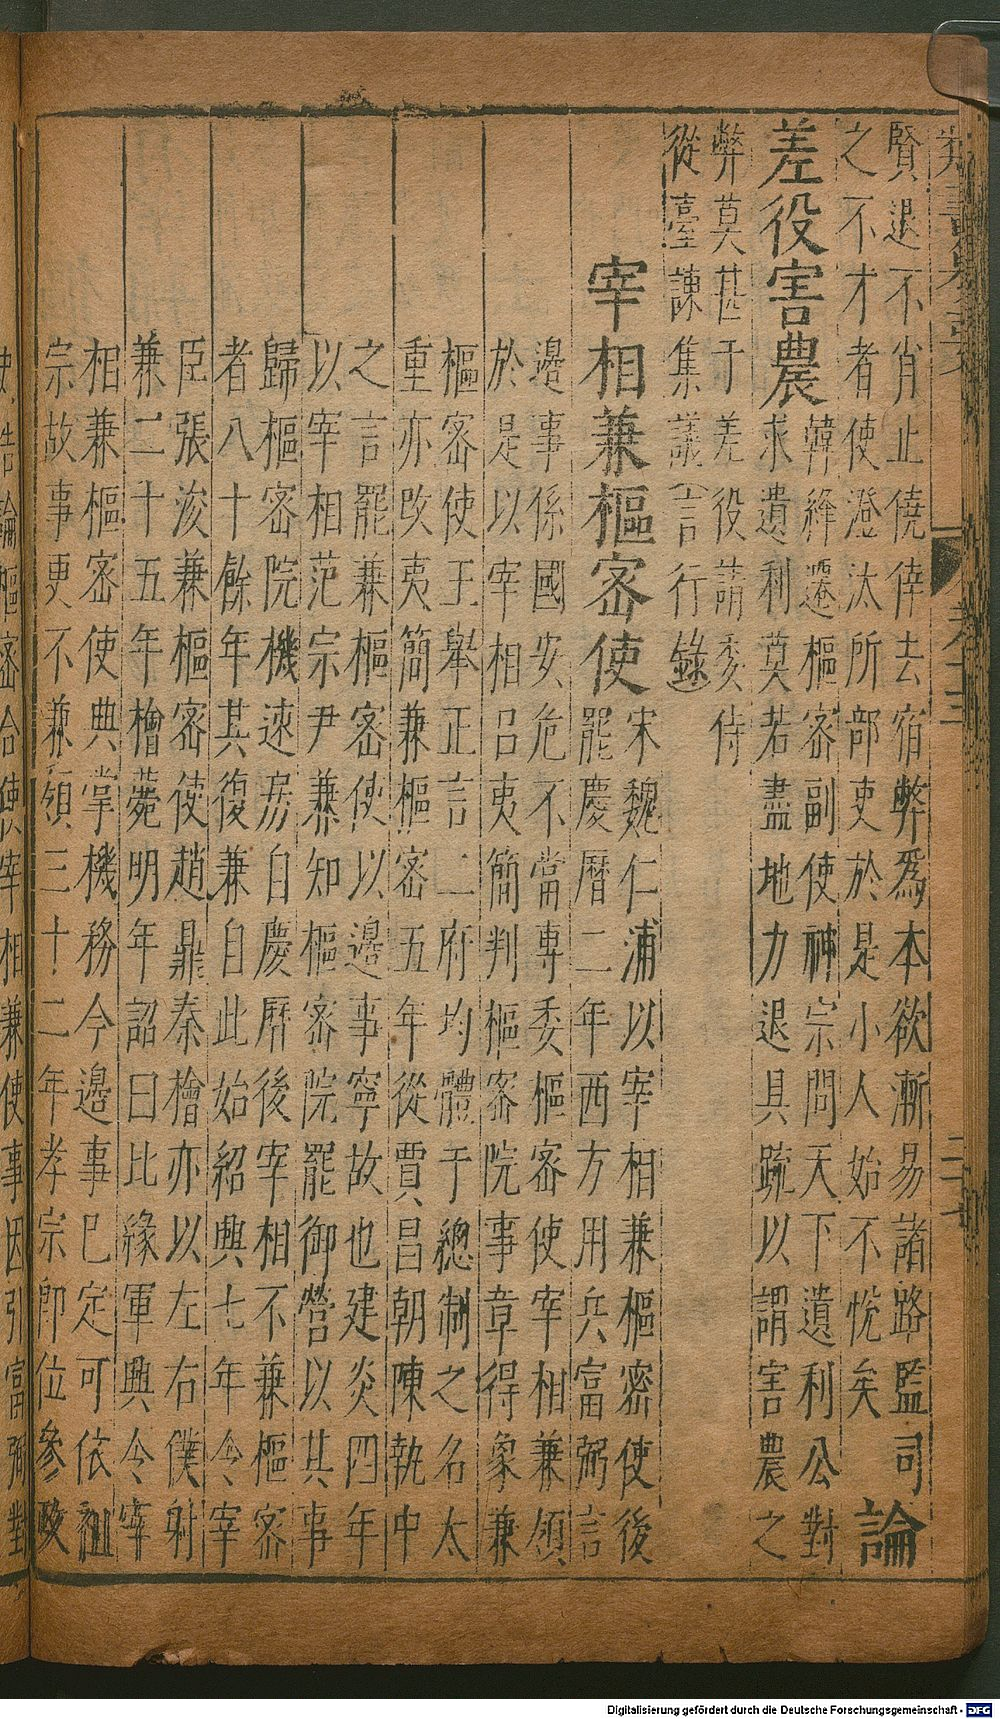 賢退不肖止僥倖去宿弊爲本欲漸易諸路監司
之不才者使澄汰所部吏於是小人始不悅矣 論
差役害農 韓絳遷樞密副使神宗問天下遺利公對
求遺利莫若盡地力退具疏以謂害農之
弊莫甚于差役請委侍
從臺諫集議 言行錄
宰相兼樞密使 宋魏仁浦以宰相兼樞密使後
罷慶曆二年西方用兵富弼言
邊事係國安危不當專委樞密使宰相兼領
於是以宰相呂夷簡判樞密院事章得象兼
樞密使王舉正言二府均體于總制之名太
重亦改夷簡兼樞密五年從賈昌朝陳執中
之言罷兼樞密使以邊事寧故也建炎四年
以宰相范宗尹兼知樞密院罷御營以其事
歸樞密院機速房自慶曆後宰相不兼樞密
者八十餘年其復兼自此始紹興七年令宰
臣張浚兼樞密使趙鼎秦檜亦以左右僕射
兼二十五年檜薨明年詔曰比緣軍興令宰
相兼樞密使典掌機務今邊事已定可依祖
宗故事更不兼領三十二年孝宗卽位參政
史浩論樞密合使宰相兼使事因引富弼對
Digitalisierung gefördert durch die Deutsche Forschungsgemeinschaft - DFG